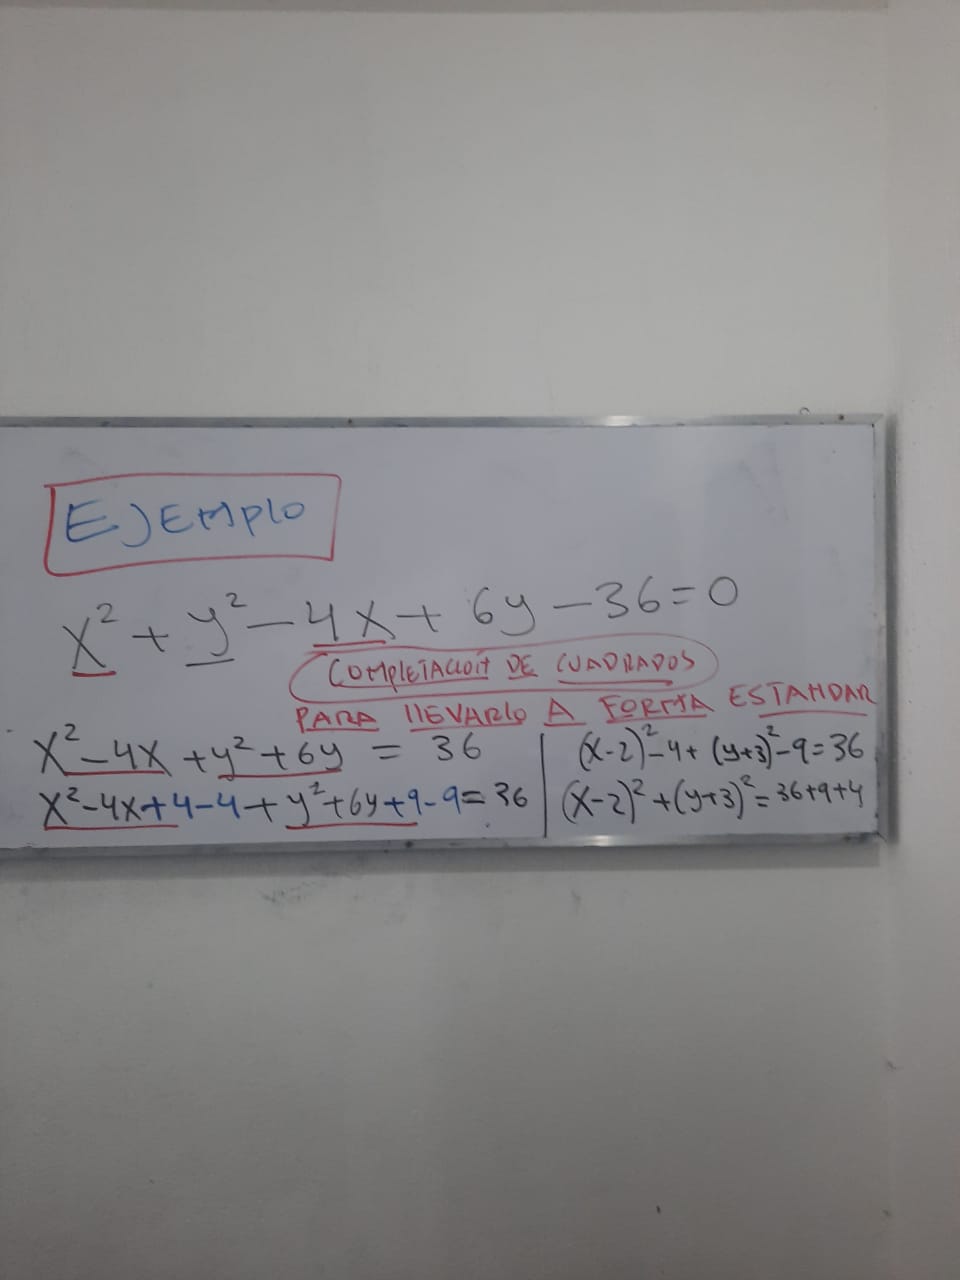 EJEMPLO
x² + y² - 4x + 6y - 36 = 0
COMPLETACIÓN DE CUADRADOS
PARA LLEVARLO A FORMA ESTANDAR
x² - 4x + y² + 6y = 36
x² - 4x + 4 - 4 + y² + 6y + 9 - 9 = 36
(x-2)² - 4 + (y+3)² - 9 = 36
(x-2)² + (y+3)² = 36 + 9 + 4